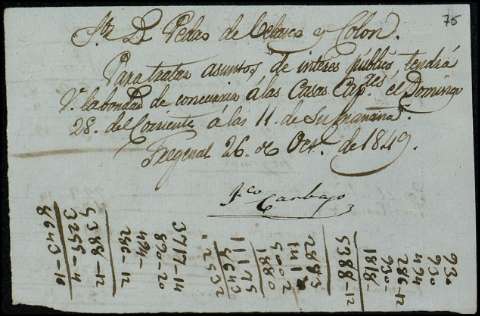 75
Sr. D. Pedro de Velasco y Colon.
Para tratar asuntos de interes público tendrá
V. la bondad de concurrir á las Casas Capres. el Domingo
28. del Corriente á las 11. de su mañana.
Fregenal 26. de Oct. de 1849.
Fco
930
930
494
286-12
930-
1818-
5388-12
2883
5002
1880
11175
8643
2532
3717-14
890-20
494-
286-12
5388-12
3255-4
8643-16